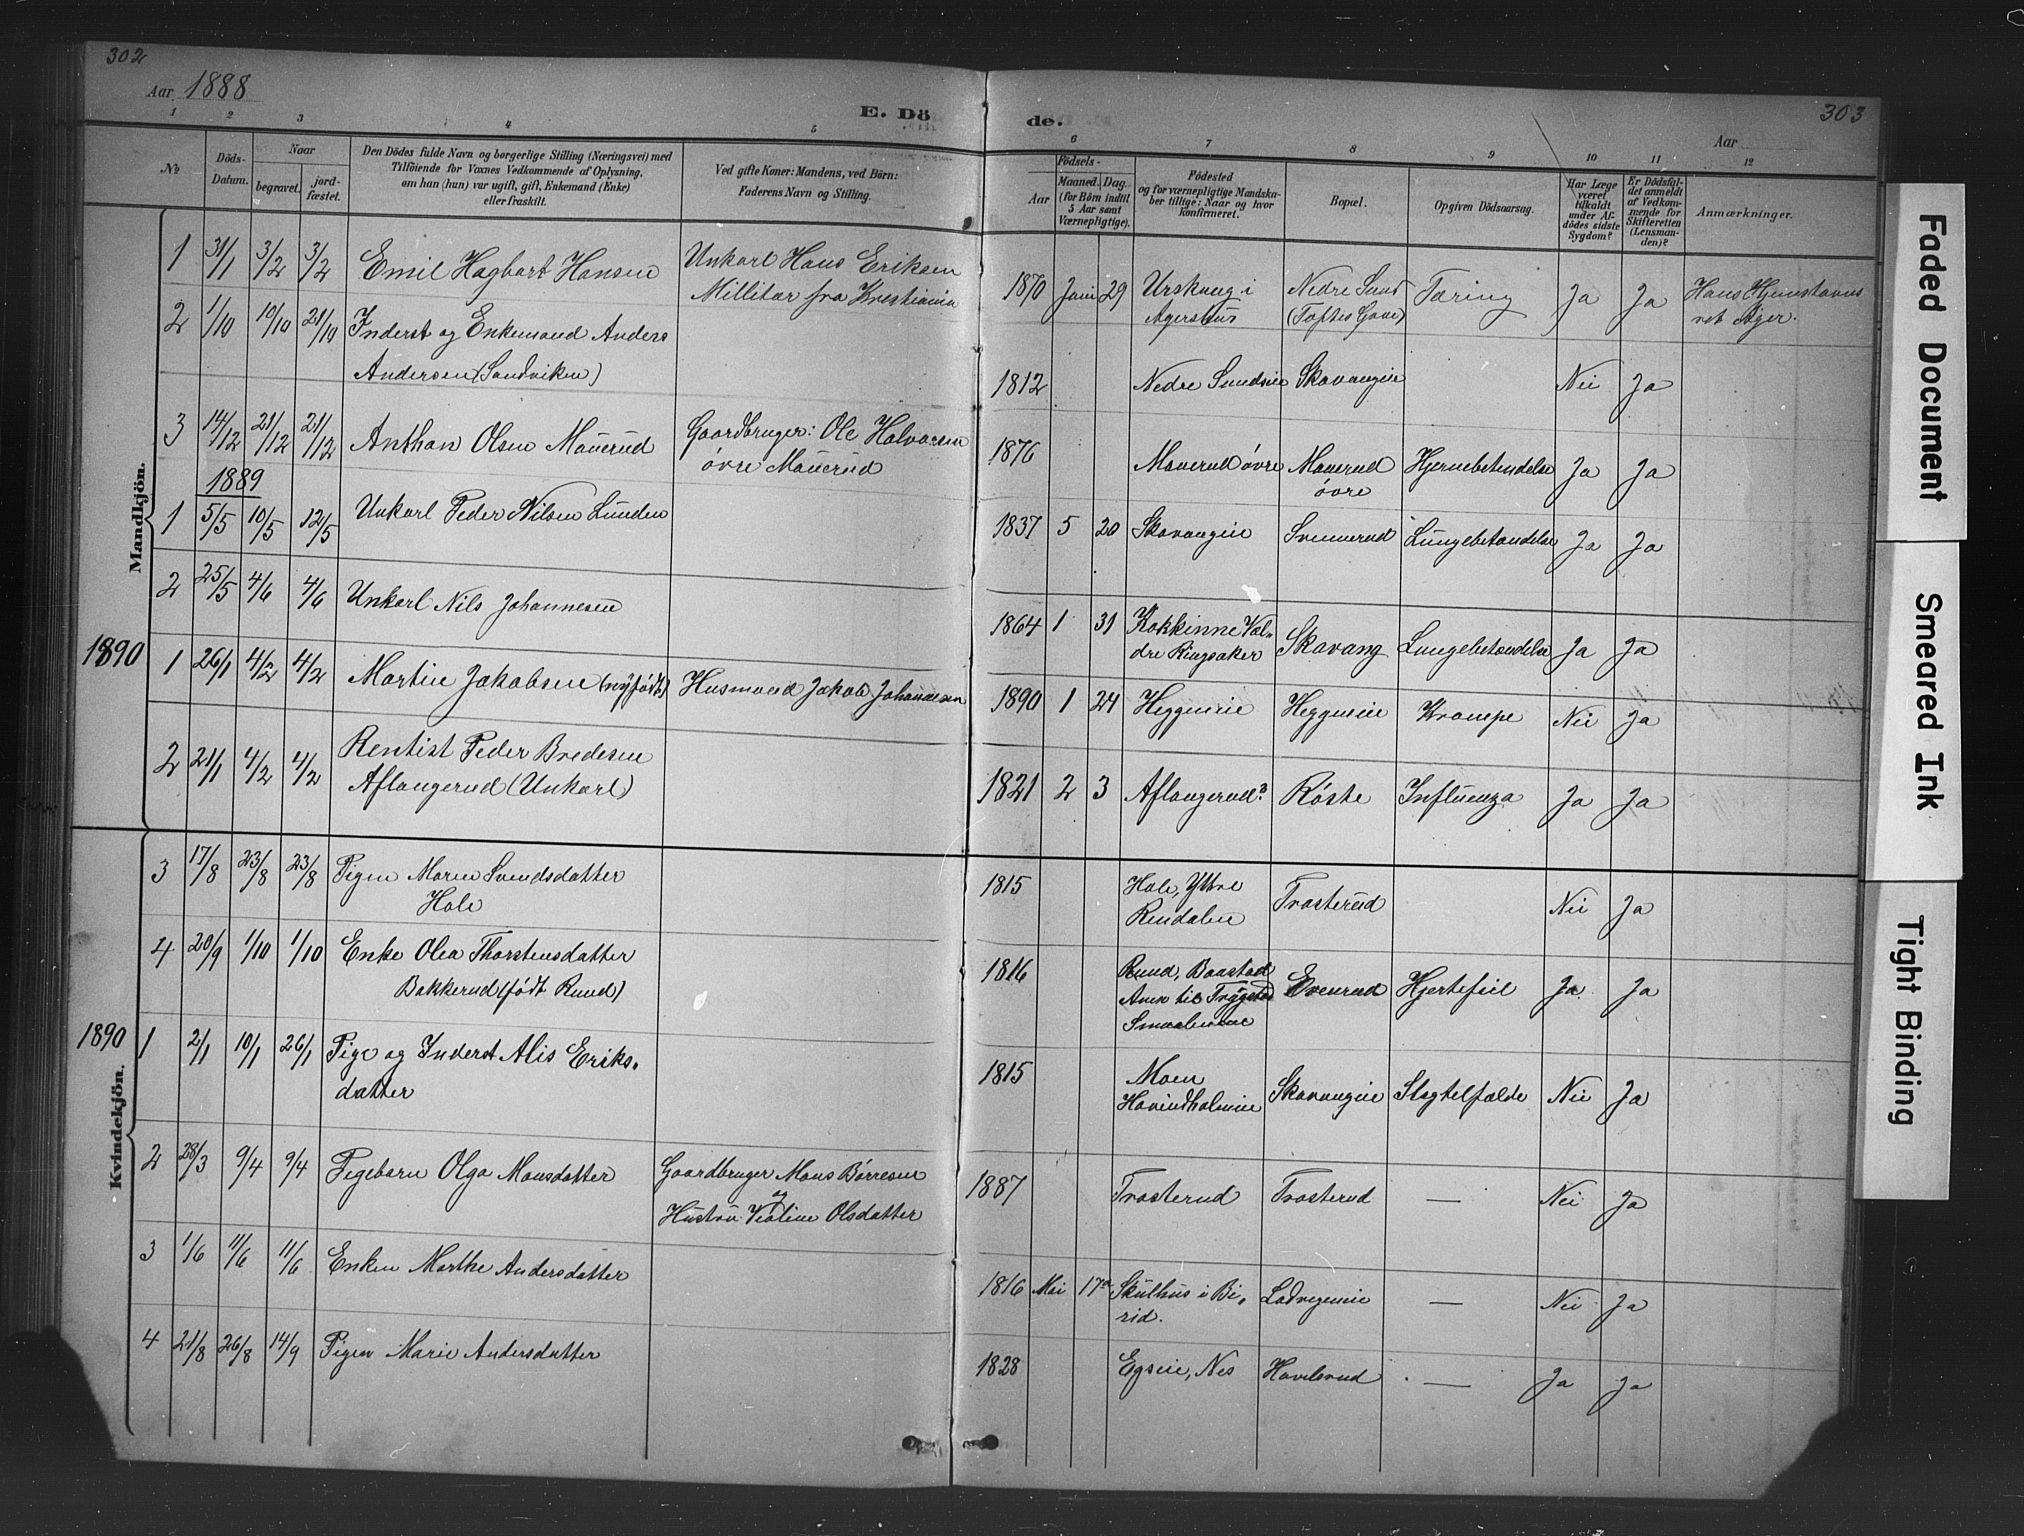 302
Aar 1888
E. Dö
de.
303
Aar
1 2 3 4 5 6 7 8 9 10 11 12
№
Döds-
Datum.
Naar
begravet.
jord-
fæstet.
Den Dödes fulde Navn og borgerlige Stilling (Næringsvei) med
Tilföiende for Voxnes Vedkommende af Oplysning,
om han (hun) var ugift, gift, Enkemand (Enke)
eller fraskilt.
Ved gifte Koner: Mandens, ved Börn:
Faderens Navn og Stilling.
Födsels-
Aar
Maaned.
Dag
(for Börn indtil
5 Aar samt
Værnepligtige).
Födested
og for værnepligtige Mandska-
ber tillige: Naar og hvor
konfirmeret.
Bopæl.
Opgiven Dödsaarsag.
Har Læge
været
tilkaldt
under Af-
dödes sidste
Sygdom?
Er Dödsfal-
det anmeldt
af Vedkom-
mende for
Skifteretten
(Lensman-
den)?
Anmærkninger.
Mandkjön.
1 31/1 3/2 3/2 Emil Hagbart Hansen Unkarl Hans Eriksen
Millitær fra Kristiania
1870 Juni 29 Urskoug i Nedre Sund Tæring Ja Ja Hans Hjemstavns
Agershus (Toftes Gave) ret Ager.
2 1/10 10/10 21/10 Inderst og Enkemand Anders
Andersen (Sandviken)
1812 Nedre Sundseie Skavangeie Nei Ja
3 14/12 21/12 21/12 Anthon Olsen Mauerud Gaardbruger: Ole Halvorsen
øvre Mauerud
1876 Mauerud øvre Mauerud Hjernebetendelse Ja Ja
øvre
1889
1 5/5 10/5 12/5 Unkarl Peder Nilsen Lunden
1837 5 20 Skavangeie Svennerud Lungebetændelse Ja Ja
2 25/5 4/6 4/6 Unkarl Nils Johannesen
1864 1 31 Kokkinne Væl- Skavang Lungebetændelse Ja Ja
dre Ringsaker
1890
1 26/1 4/2 4/2 Martin Jakobsen (nyfødt) Husmand Jakob Johannesen
1890 1 24 Heggeneie Heggeneie Krampe Nei Ja
2 21/1 4/2 4/2 Rentist Peder Bredesen
Aflangerud (Unkarl)
1821 2 3 Aflangerud? Røste Influenza Ja Ja
Kvindekjön.
3 17/8 23/8 23/8 Pigen Maren Svendsdatter
Hole
1815 Hole, Yttre Trosterud Nei Ja
Rendalen
4 20/9 1/10 1/10 Enke Olea Thorstensdatter
Bakkerud (født Ruud)
1816 Ruud, Baastad Evenrud Hjertefeil Ja. Ja
Anex til Trygstad
Smaalenene
1890
1 2/1 10/1 26/1 Pige og Inderst Alis Eriks-
datter
1815 Moen Skavangeie Slagtelfælde Nei Ja
Havindholmeie
2 28/3 9/4 9/4 Pigebarn Olga Monsdatter Gaardbruger Mons Børresen
og
Hustru Violine Olsdatter
1887 Trosterud Trosterud — Nei Ja
3 1/6 11/6 11/6 Enken Marthe Andersdatter
1816 Mai 17de Skulhus i Bi- Ladvegeneie — Nei Ja
rid.
4 21/8 26/8 14/9 Pigen Marie Andersdatter
1828 Egseie, Nes Havelsrud — Ja Ja
Faded Document
Smeared Ink
Tight Binding